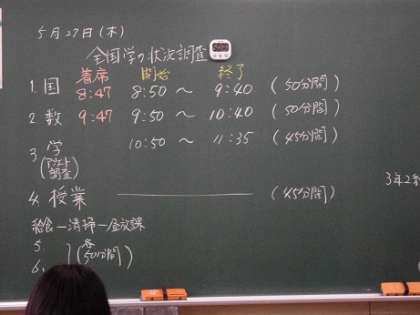 5月27日(木)
全国学力状況調査
着席 開始 終了
1. 国 8:47 8:50 〜 9:40 (50分間)
2. 数 9:47 9:50 〜 10:40 (50分間)
3. 学 10:50 〜 11:35 (45分間)
(アンケート調査)
4. 授業 ―――― (45分間)
3年2
給食―清掃―昼放課
5.
6. (各50分間)